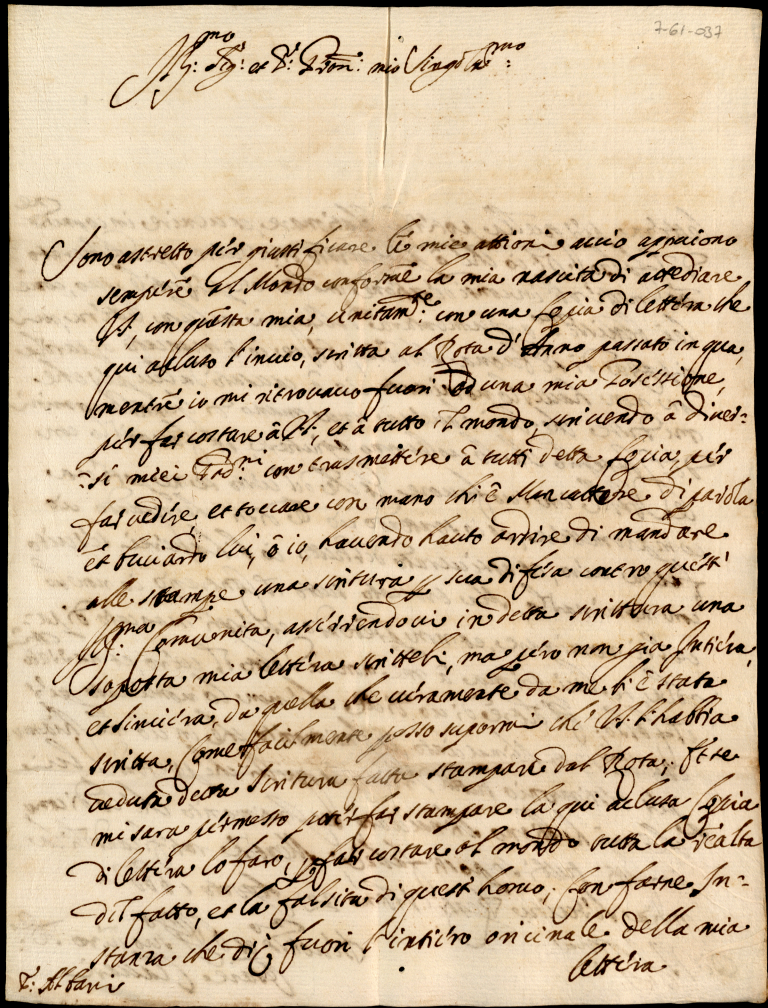 7-61-037
Ill:mo Sig: et P: Pron: mio Singol:mo
Sono astretto per giustificare le mie attioni acciò appaiono
sempre al Mondo conforme la mia nascita di attediare
VS, con questa mia, unitam:te con una Copia di lettera che
qui acluso l'invio, scritta al Rota d'Anno passato in qua,
mentre io mi ritrovavo fuori ad una mia Possessione,
per far costare à VS, et à tutto il mondo, scrivendo à diver=
=si miei Pad:ni con trasmettere à tutti detta Copia, per
far vedere, et toccare con mano chi è Mancatore di parola
et buciardo lui, ò io, havendo hauto ardire di mandare
alle stampe una scritura p sua difesa contro quest'
Ill:ma Comunita, asserendovi in detta scrittura una
suposta mia lettera scritteli, ma però non gia Intiera,
et sinciera, da quella che veramente da me li è stata
scritta, Come facilmente posso supormi che VS. l'habbia
veduta detta Scritura fatta stampare dal Rota; Et se
mi sara permesso poter far stampare la qui aclusa Copia
di lettera lo faro, p far costare al mondo tutta la realta
del fatto, et la falsita di quest homo; Con farne In=
stanza che dij fuori l'intiero originale della mia
lettera
F: Albani